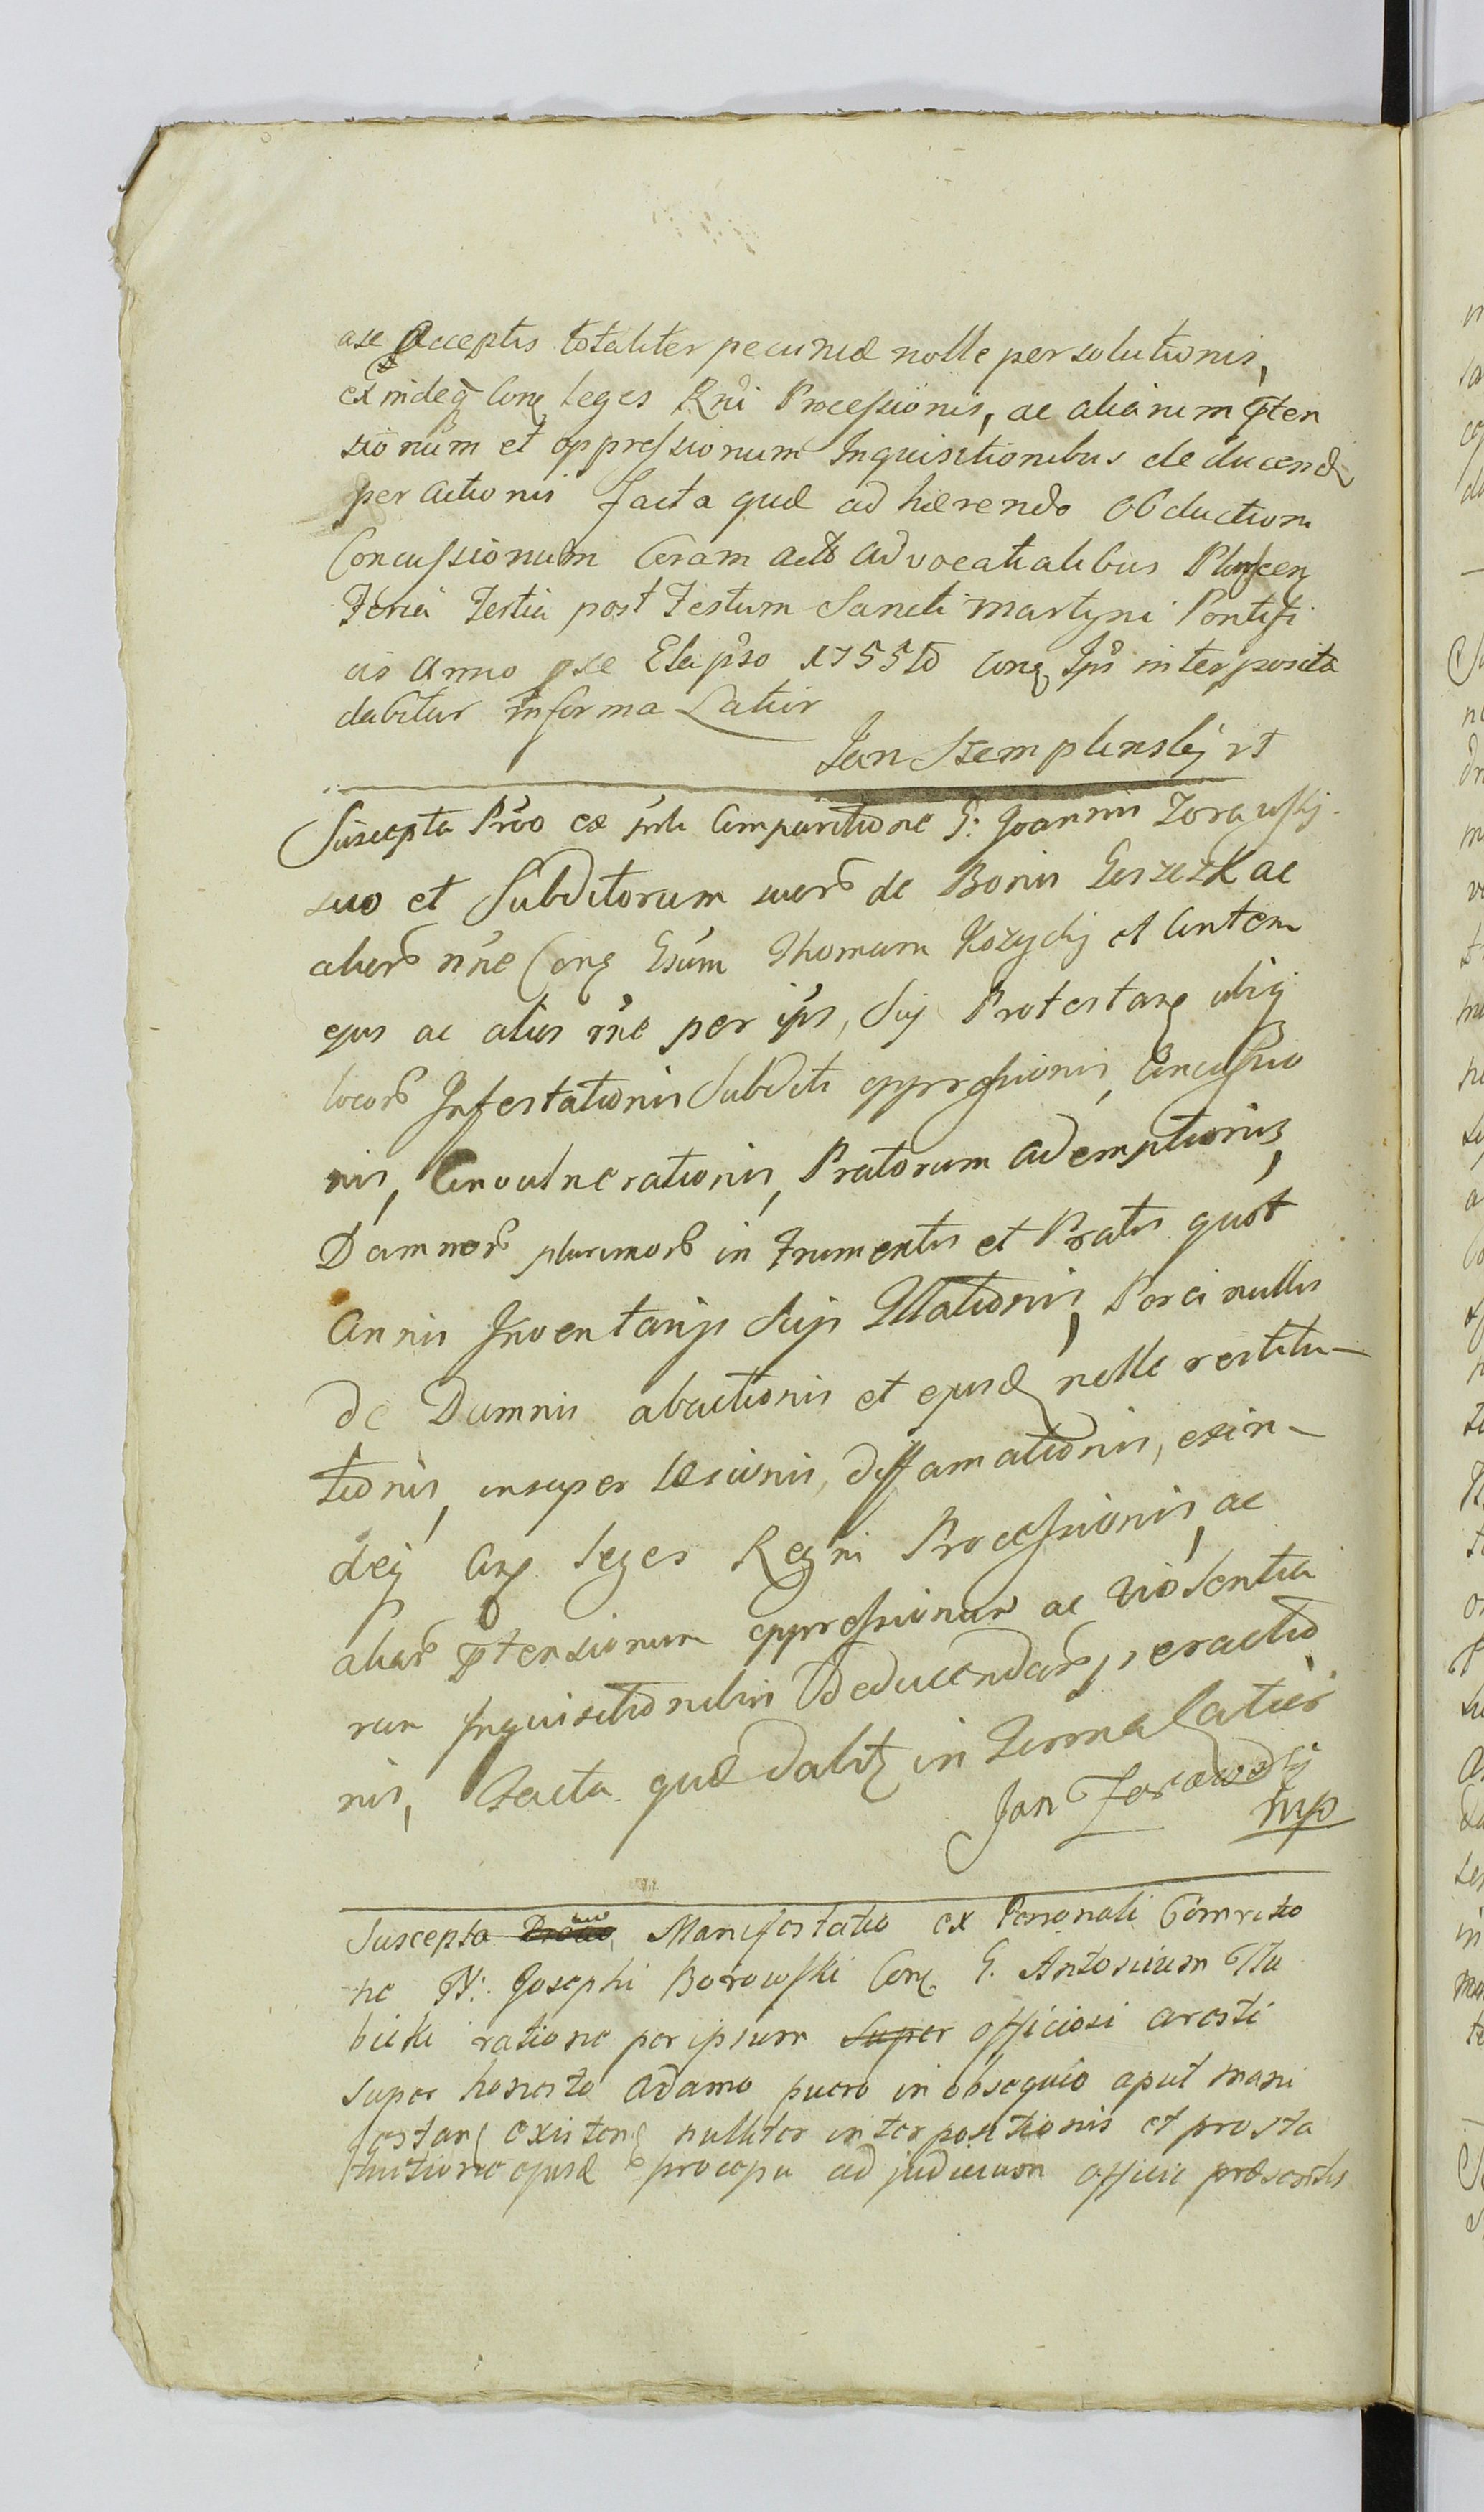 ase acceptis totaliter pecuniæ nolle persolutionis,
exindeq Conq Leges Rni Processionis, ac aliarum pten
sionum et oppressionum Inquisitionibus deducend
peractionis facta quæ adhærendo Obductioni
Concussionum Coram actis advocatialibus
Feria Tertia post Festum Sancti Martyni Pontifi
cis Anno pxe Elapso 1755to Conq Ips interposita
dabitur in forma Latior
Jan Szemplinskj
Suscepta ex Comparitione G: Joannis Zorawskj
suo et Subditorum suors de Bonis ac
aliors nne Conq Gsum Thomam et
ejus ac alios rne per ips, Sup Protestanq ubiq
locors Infestationis Subditi oppressionis, Concussio
nis, Convulnerationis, Pratorum ademptionis,
Damnors plurimors in Frumentis et Pratis quot
Annis Inventarijs Suis Illationis, Porci nullis
de Damnis abactionis et ejusd nolle restitu-
tionis, insuper Læsionis, diffamationis, exin-
deq Conq Leges Regni Processionis, ac
aliars ptensionum oppressionum ac violentia
rum Inquisitionibus Deducendars peractio
nis, Facta quæ dabitz in Forma Latiori
Jan Zorawskj
mp
Suscepta Manifestatio ex Personali Comritio
ne N: Josephi Borowski Conq G. Antonium
bicki ratione per ipsum Super officiosi aresti
super honesto Adamo puero in obsequio aput mani
festanq existenq nulliter interpositionis et prosta
tutione ejusd procopu ad judicium officii præsentis